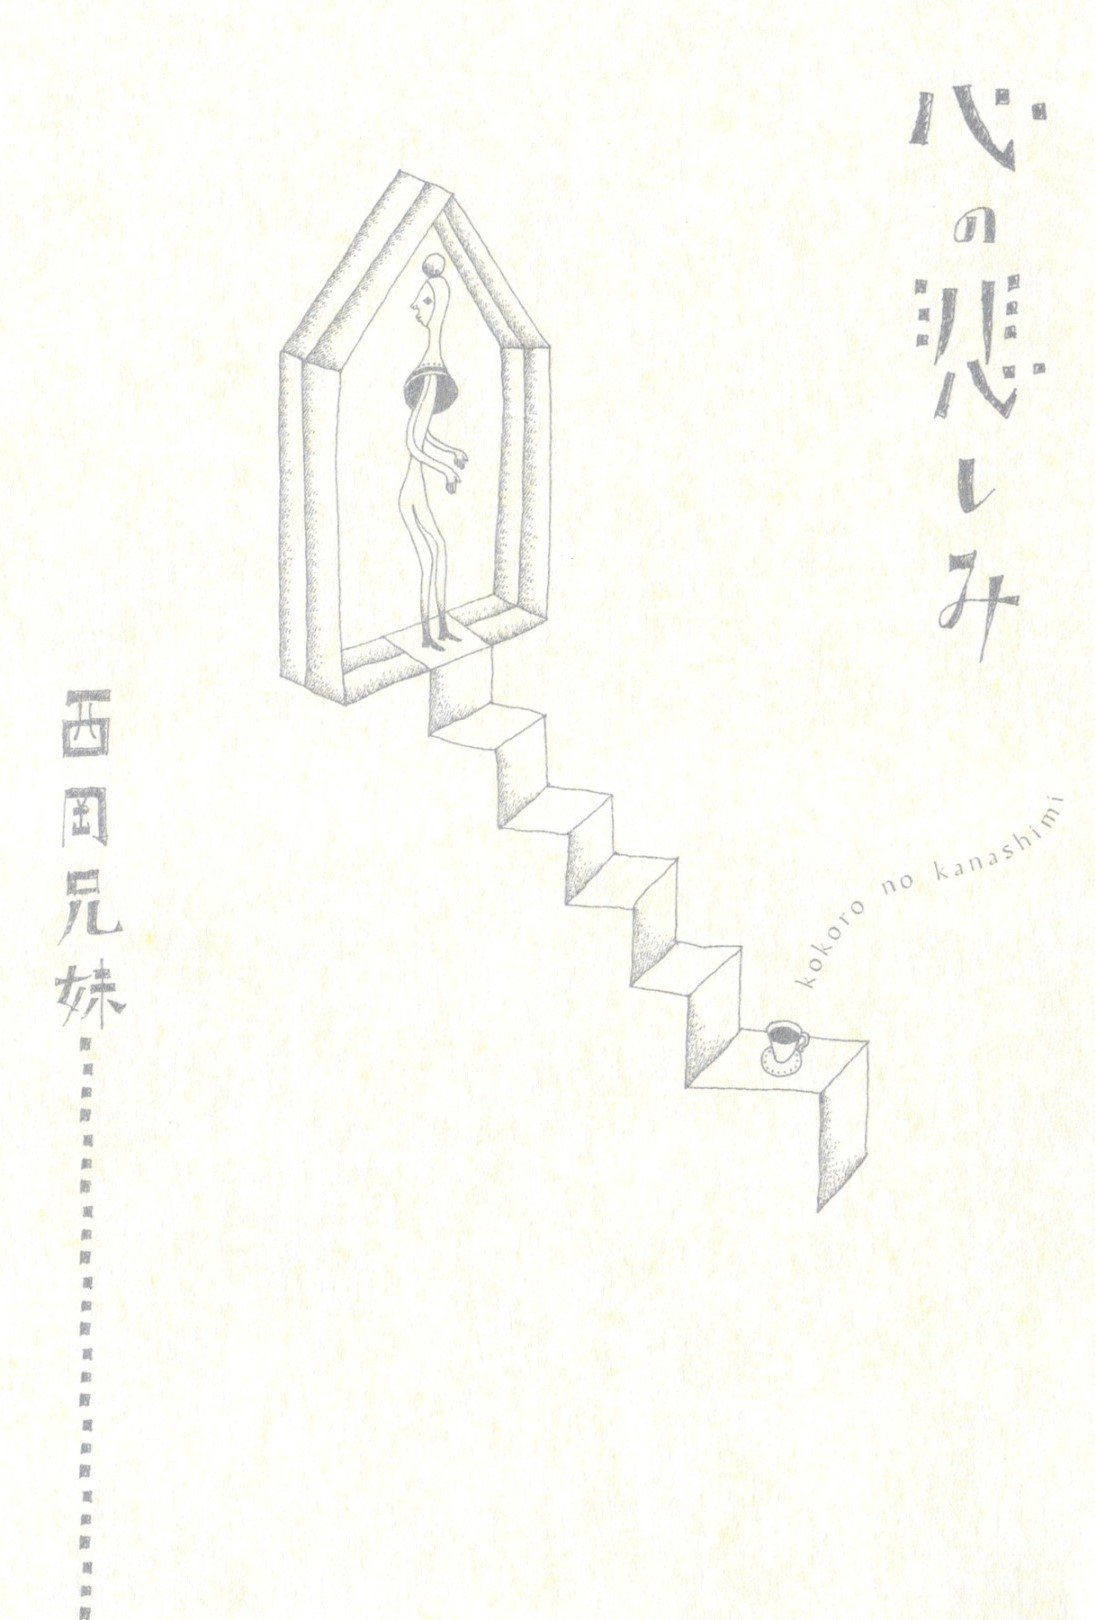 心の悲しみ
kokoro no kanashimi
西岡兄妹